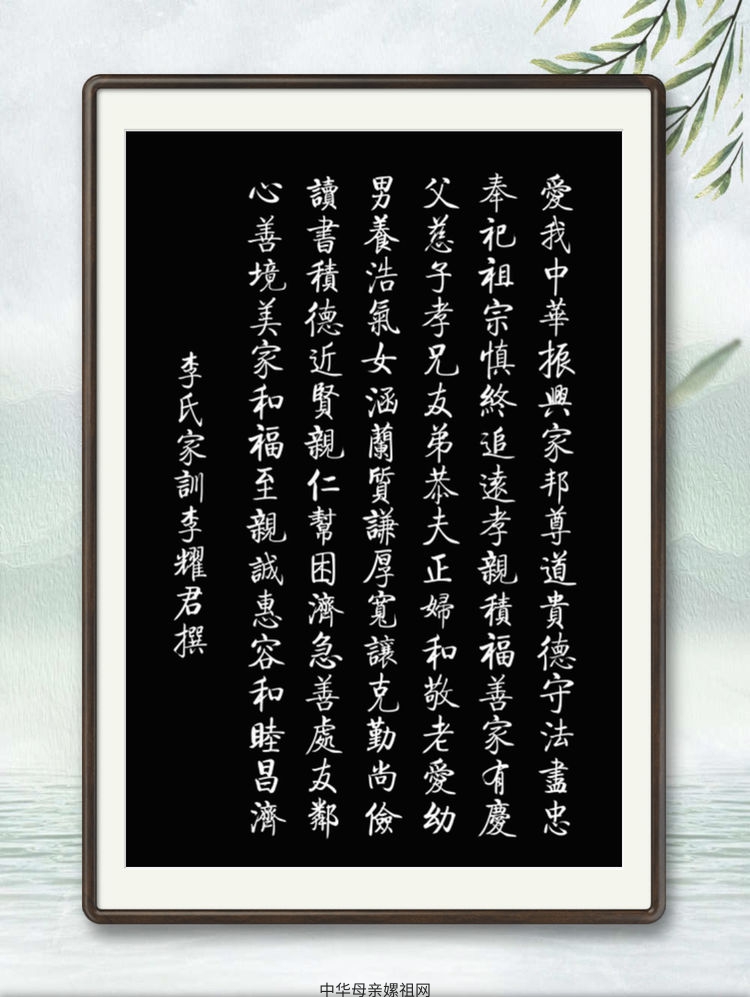 愛我中華振興家邦尊道貴德守法盡忠
奉祀祖宗慎終追遠孝親積福善家有慶
父慈子孝兄友弟恭夫正婦和敬老愛幼
男養浩氣女涵蘭質謙厚寬讓克勤尚儉
讀書積德近賢親仁幫困濟急善處友鄰
心善境美家和福至親誠惠容和睦昌濟
李氏家訓李耀君撰
中华母亲嫘祖网